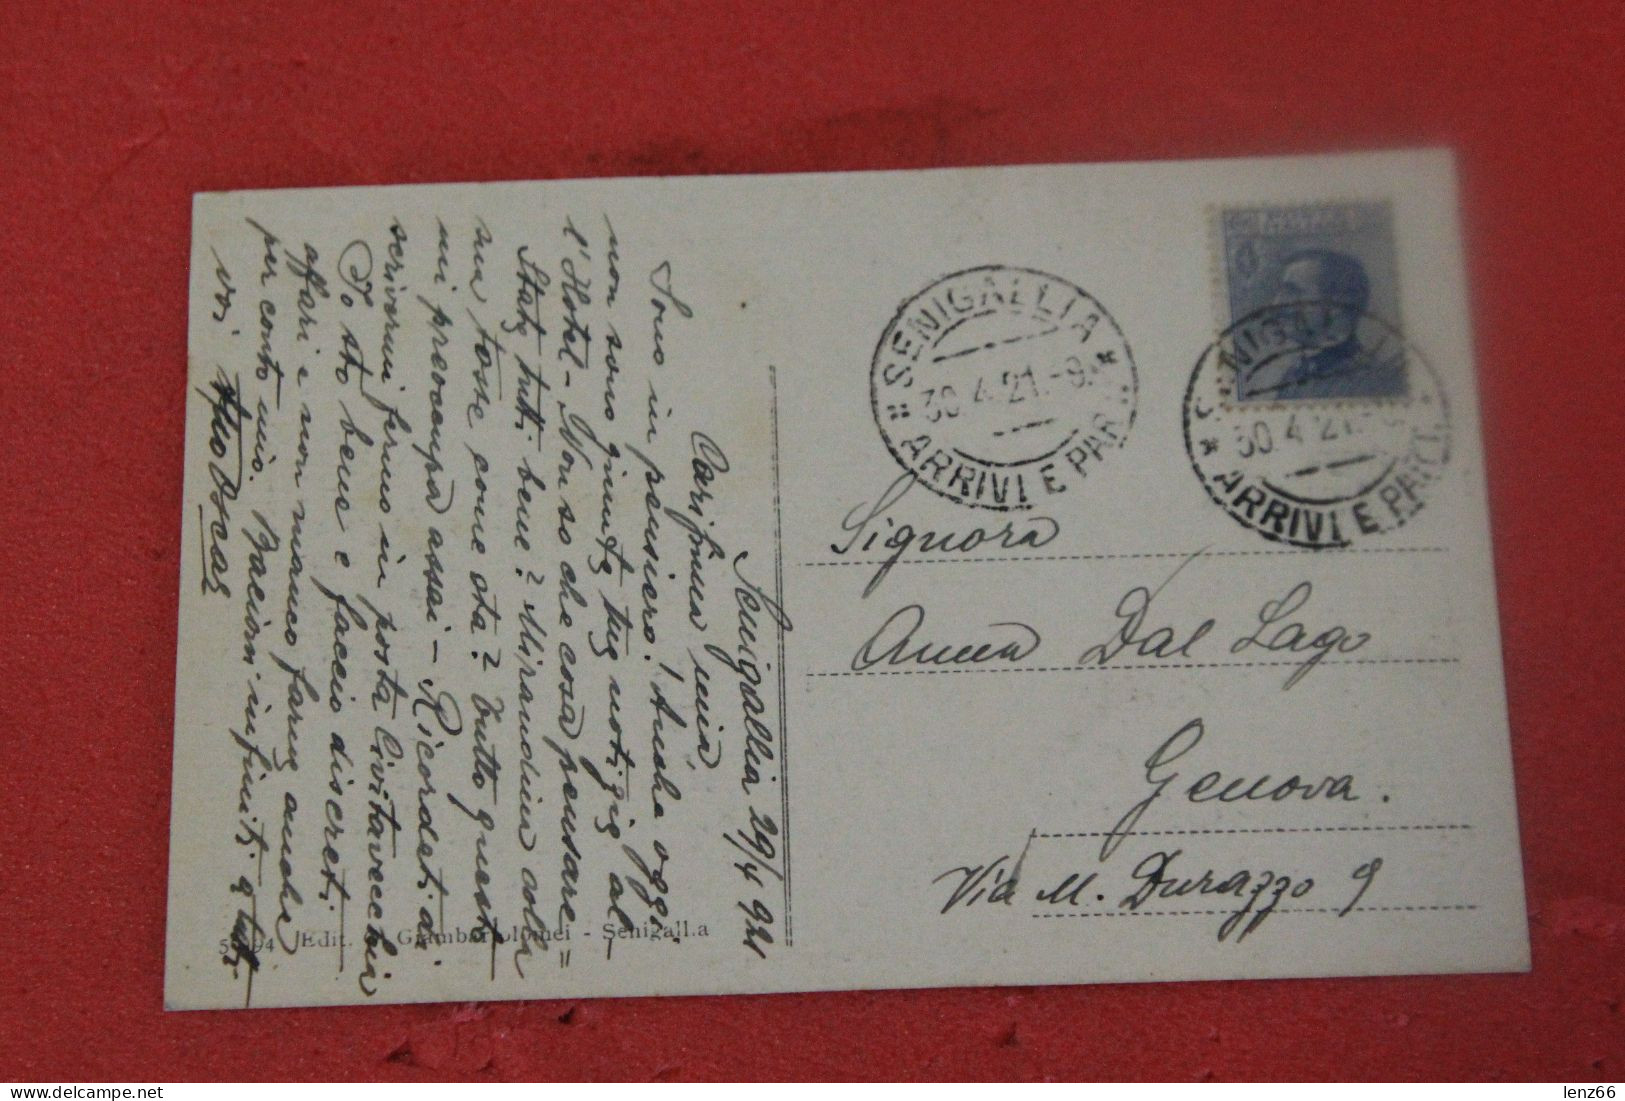 Senigallia 29/4 921
Carissima mia,
Sono in pensiero! Anche oggi
non sono giunte tue notizie al-
l'Hotel - Non so che cosa pensare =
State tutti bene? Mirandina colla
sua tosse come sta? Tutto questo
mi preoccupa assai - Ricordati di
scrivermi fermo in posta Civitavecchia
Io sto bene e faccio discreti
affari e non manco farne anche
per conto mio. Bacioni infiniti a tutti
voi
Oscar
Signora
Anna Dal Lago
Genova.
Via M. Durazzo 9
SENIGALLIA
30.4.21.-8
ARRIVI E PAR
SENIGALLIA
30.4.21
ARRIVI E PART.
Edit. Giambartolomei - Senigallia
lenz66